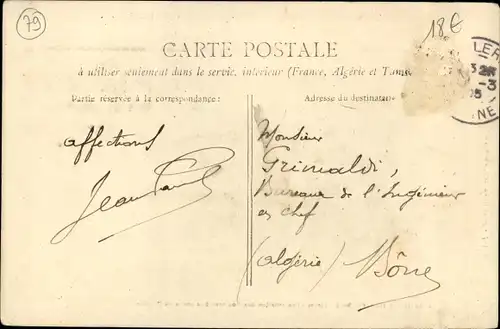 79
18€
CARTE POSTALE
à utiliser seulement dans le service intérieur (France, Algérie et Tunisie
Partie réservée à la correspondance :
Adresse du destinataire
LER
3
-3
05
NE
affections
Monsieur
Grimaldi,
Bureau de l'Ingénieur
en chef
(algérie) Bône